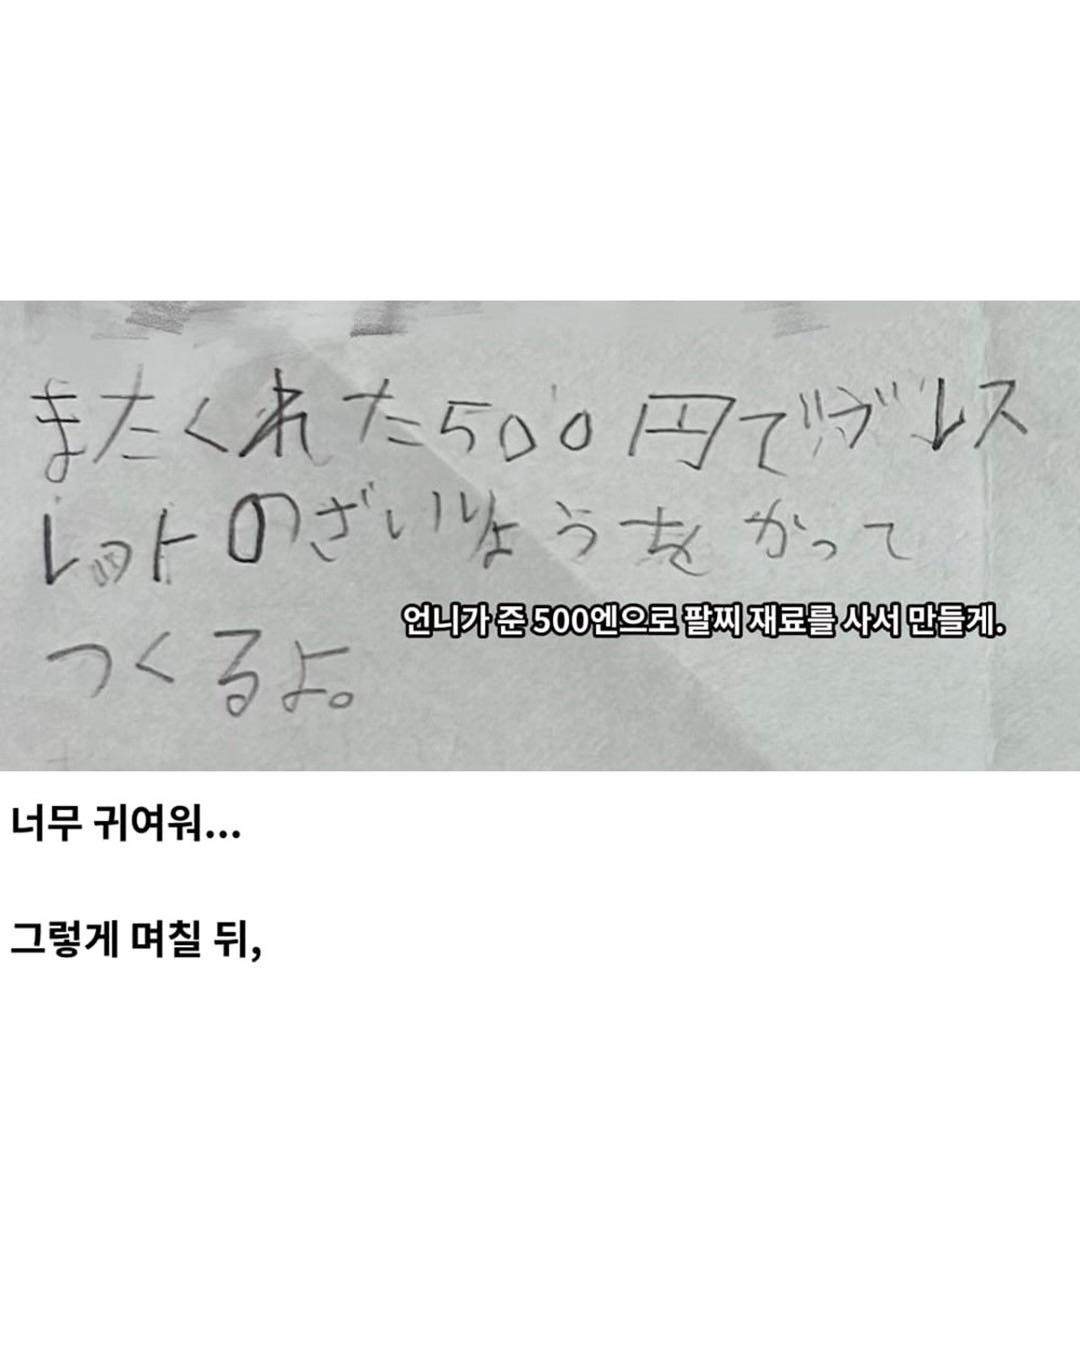 またくれた500円でブレス
レットのざいりょうをかって
つくるよ。
언니가 준 500엔으로 팔찌 재료를 사서 만들게.
너무 귀여워...
그렇게 며칠 뒤,